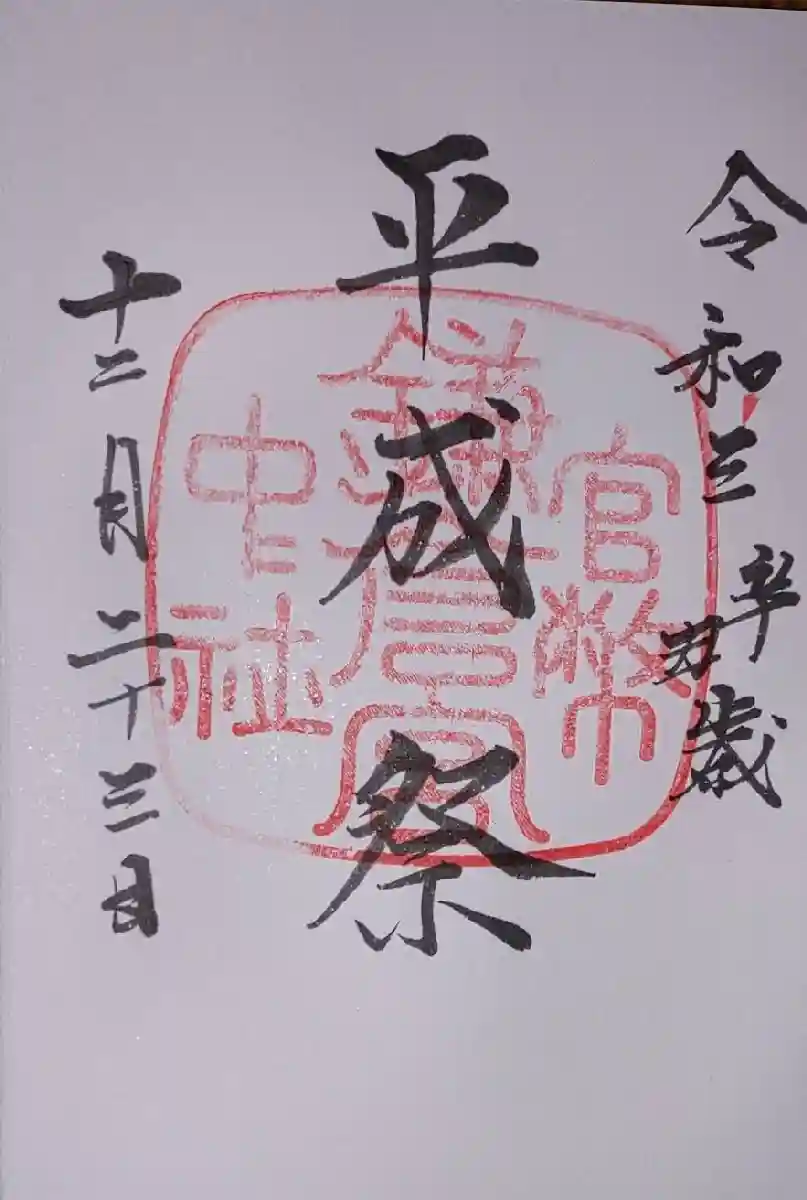 令和三辛丑歳
平成祭
十二月二十三日
官幣
鎌倉宮
中社